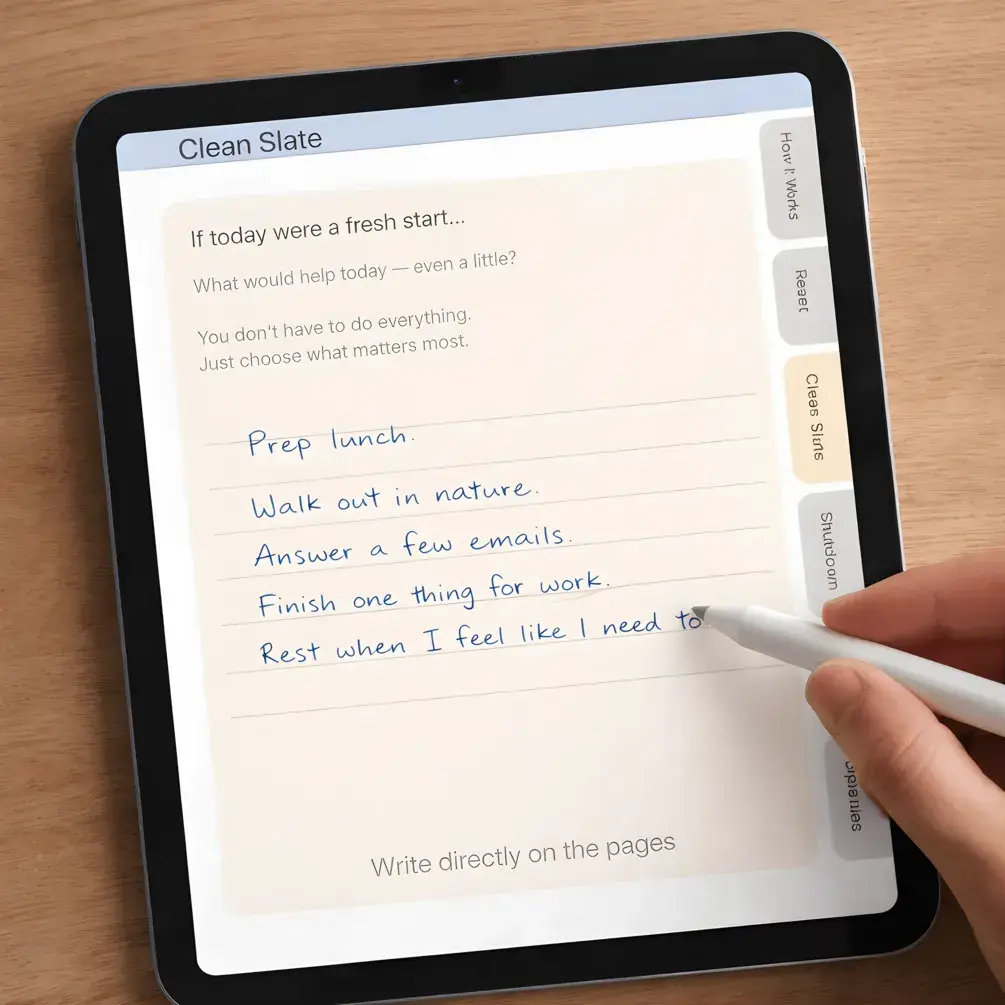 Clean Slate
If today were a fresh start...
What would help today — even a little?
You don't have to do everything.
Just choose what matters most.
Prep lunch.
Walk out in nature.
Answer a few emails.
Finish one thing for work.
Rest when I feel like I need to
Write directly on the pages
How It Works
Reset
Shutdown